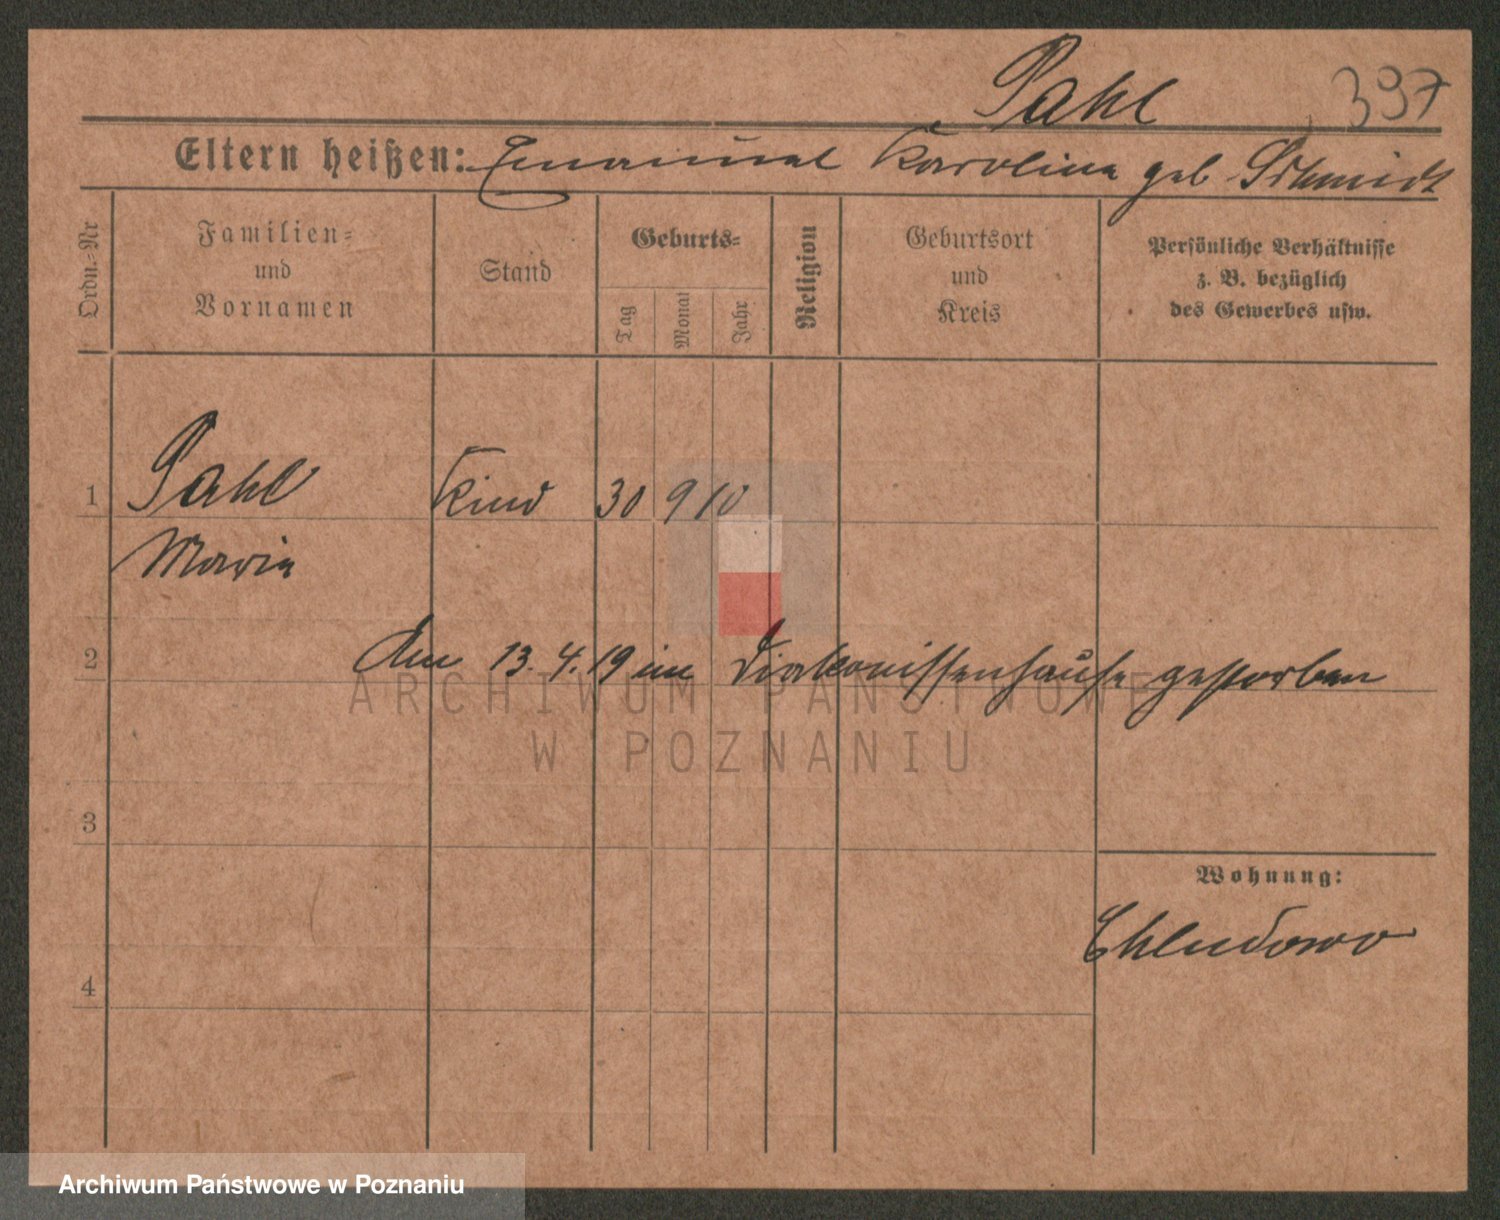 Pahl 397
Eltern heißen: Emanuel Karolina geb Schmidt
Ordn.-Nr
Familien-
und
Vornamen
Stand
Geburts-
Tag
Monat
Jahr
Religion
Geburtsort
und
Kreis
Persönliche Verhältnisse
z. B. bezüglich
des Gewerbes usw.
1 Pahl Kind 30 9 10
Maria
2 Am 13. 4. 19 im Diakonissenhause gestorben
ARCHIWUM PAŃSTWOWE
W POZNANIU
3
Wohnung:
Chludowo
4
Archiwum Państwowe w Poznaniu